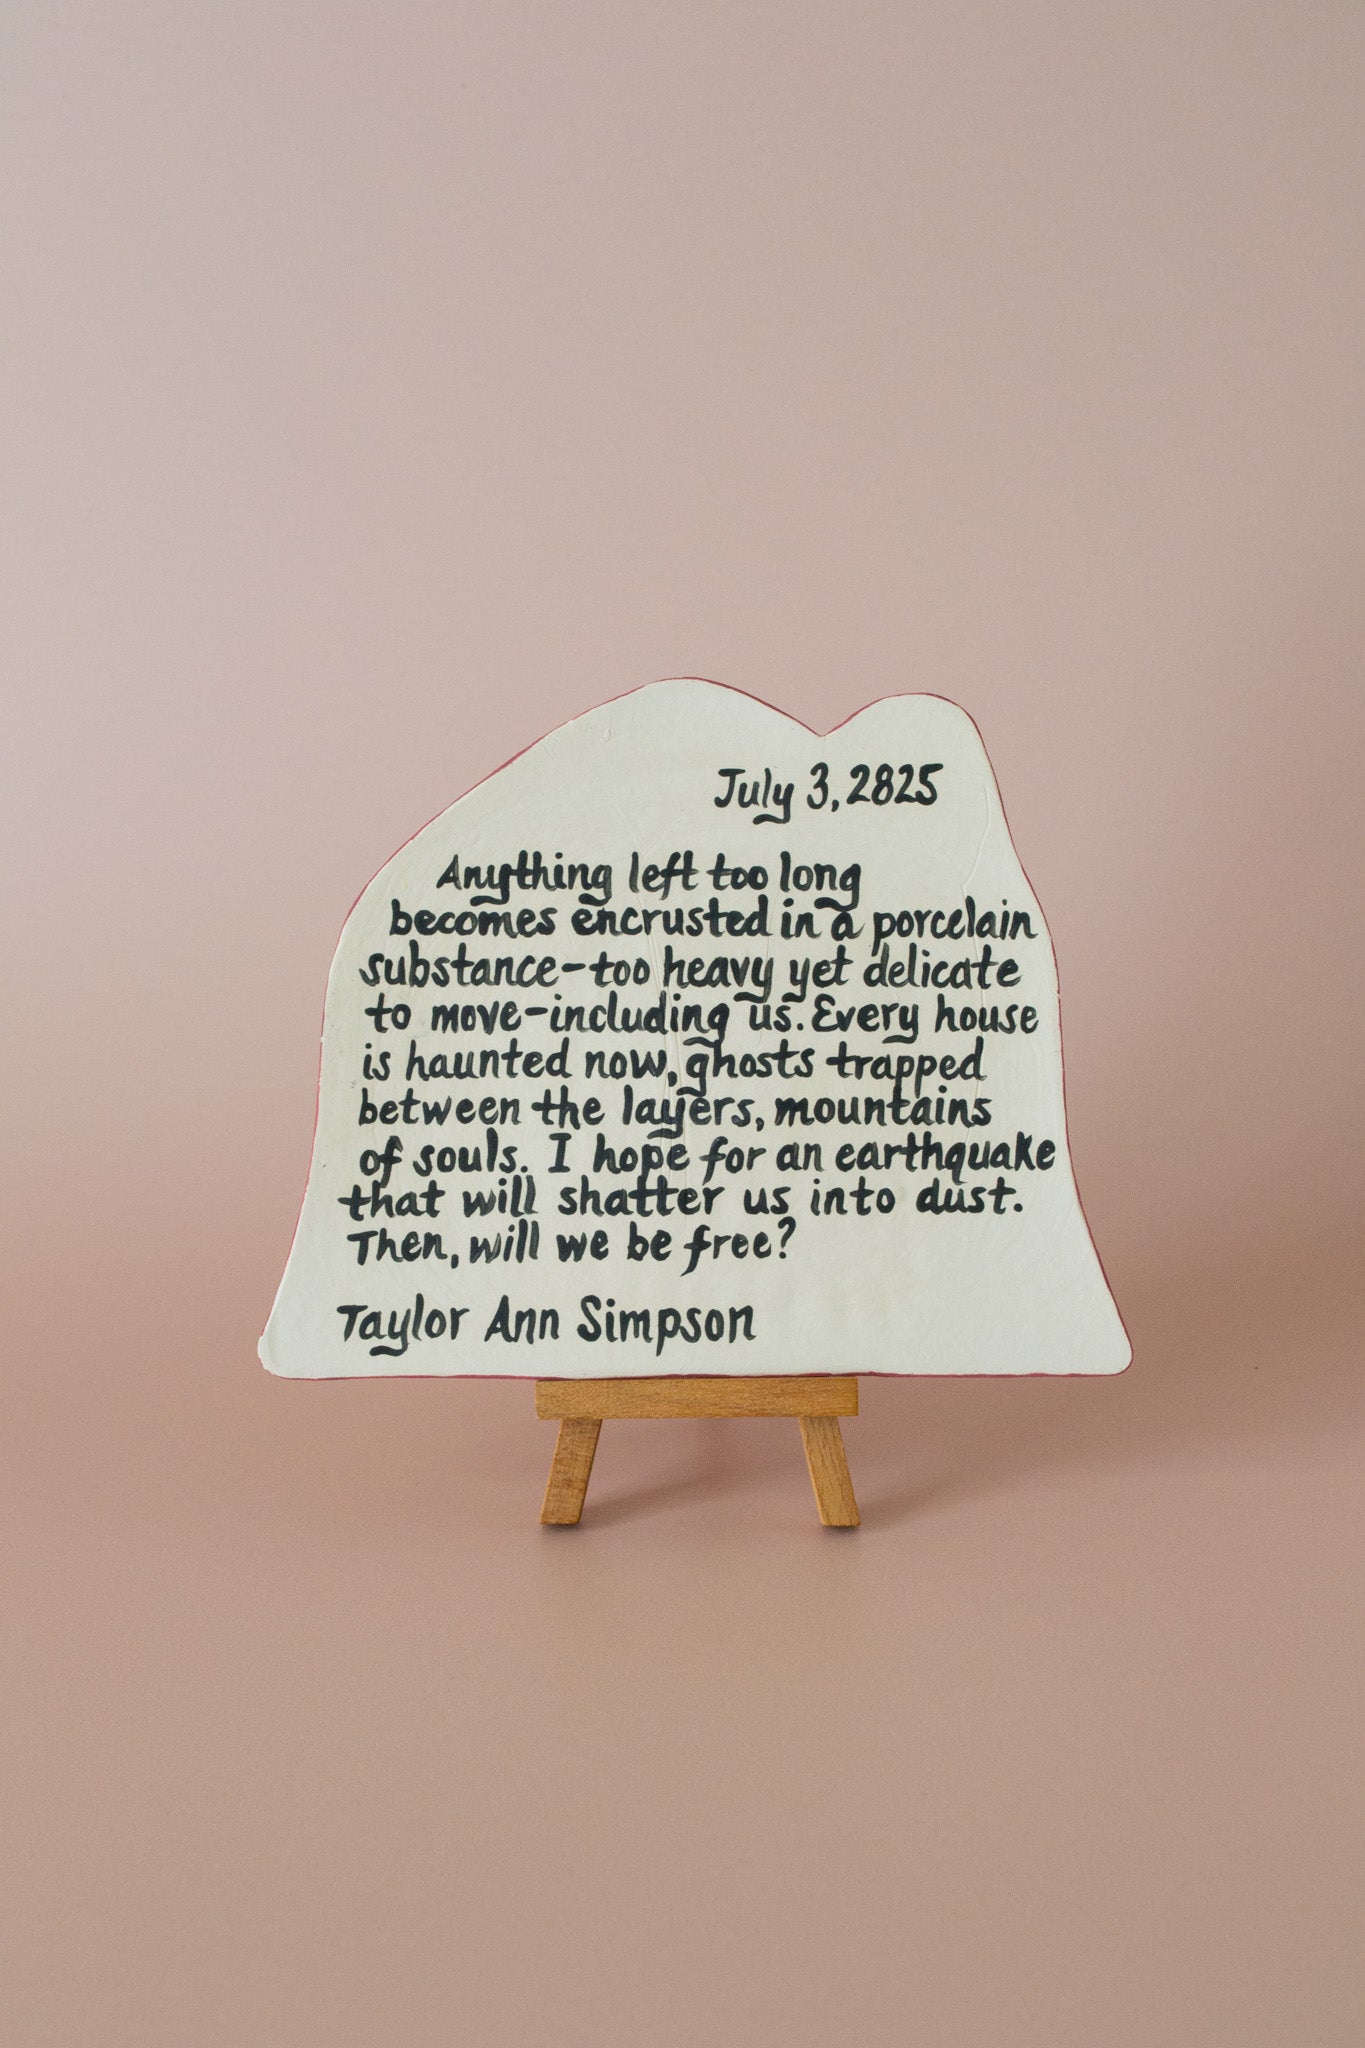 July 3, 2825
Anything left too long
becomes encrusted in a porcelain
substance-too heavy yet delicate
to move-including us. Every house
is haunted now, ghosts trapped
between the layers, mountains
of souls. I hope for an earthquake
that will shatter us into dust.
Then, will we be free?
Taylor Ann Simpson